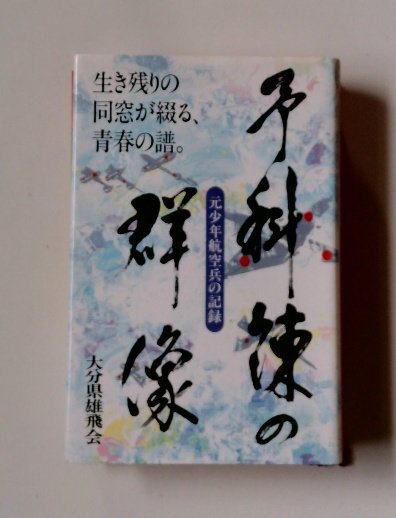 予科練の
群像
元少年航空兵の記録
生き残りの
同窓が綴る、
青春の譜。
大分県雄飛会